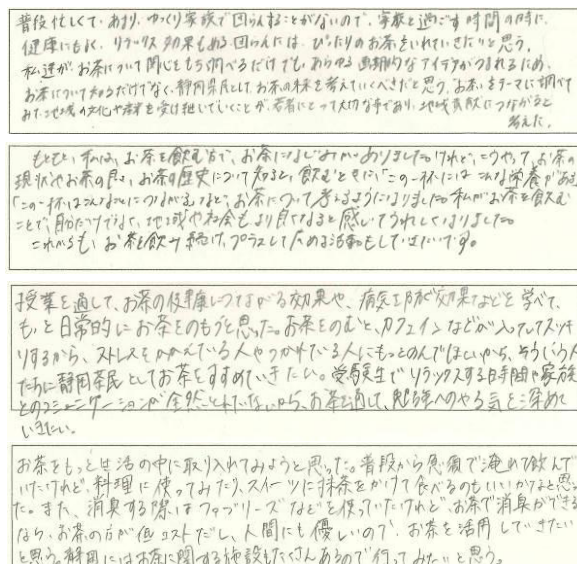 普段忙しくて、あまり、ゆっくり家族で団らんすることがないので、家族と過ごす時間の時に、
健康にもよく、リラックス効果もある団らんには、ぴったりのお茶をいれていきたいと思う。
私達が、お茶について関心をもち調べるだけでも、あらゆる画期的なアイデアがうまれるため、
お茶について知るだけでなく、静岡県民として、お茶の未来を考えていくべきだと思う。お茶をテーマに調べて
みた地域の文化や産業を受け継いでいくことが、若者にとって大切な事であり、地域貢献につながると
考えた。
もともと、私は、お茶を飲む方で、お茶になじみがありました。けれど、こうやって、お茶の
現状やお茶の良さ、お茶の歴史について知ると、飲むときに、「この一杯には こんな栄養がある」
「この一杯はこんなことにつながる」など、お茶について考えるようになりました。私がお茶を飲む
ことで、自分だけでなく、地域や社会もより良くなると感じてうれしくなりました。
これからも、お茶を飲み続け、プラスして広める活動もしていきたいです。
授業を通して、お茶の健康につながる効果や、病気を防ぐ効果などを学べて、
もっと日常的にお茶をのもうと思った。お茶をのむと、カフェインなどが入っててスッキ
リするから、ストレスをかかえている人やつかれている人にもっとのんでほしいから、そういう人
たちに静岡県民としてお茶をすすめていきたい。受験生でリラックスする時間や家族
とのコミュニケーションが全然とれていないから、お茶を通して、勉強へのやる気を深めて
いきたい。
お茶をもっと生活の中に取り入れてみようと思った。普段から急須で淹れて飲んで
いたけれど、料理に使ってみたり、スイーツに抹茶をかけて食べるのもいいかなと思っ
た。また、消臭する際はファブリーズなどを使っていたけれど、お茶で消臭ができる
なら、お茶の方が低コストだし、人間にも優しいので、お茶を活用していきたい
と思う。静岡にはお茶に関する施設もたくさんあるので行ってみたいと思う。